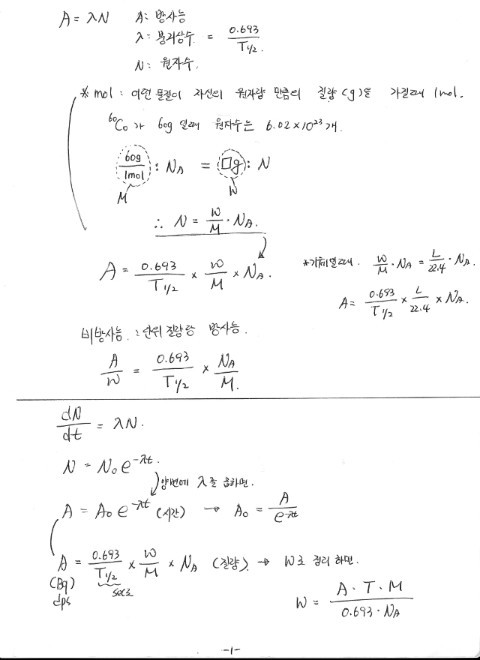 A = λN   A: 방사능
λ: 붕괴상수 = 0.693/T1/2
N: 원자수.
* mol : 어떤 물질이 자신의 원자량 만큼의 질량(g)을 가질때 1mol.
⁶⁰Co 가 60g 일때 원자수는 6.02×10²³개.
60g/1mol : NA = □g : N
M   W
∴ N = W/M · NA.
A = 0.693/T1/2 × W/M × NA.
*기체일때. W/M · NA = L/22.4 · NA.
A = 0.693/T1/2 × L/22.4 × NA.
비방사능 : 단위 질량당 방사능.
A/W = 0.693/T1/2 × NA/M.
dN/dt = λN.
N = N₀e^-λt.
양변에 λ를 곱하면.
A = A₀e^-λt (시간) → A₀ = A/e^-λt
A = 0.693/T1/2 × W/M × NA (질량) → W로 정리하면.
(Bq)   sec로
dps
W = A·T·M/0.693·NA
-1-